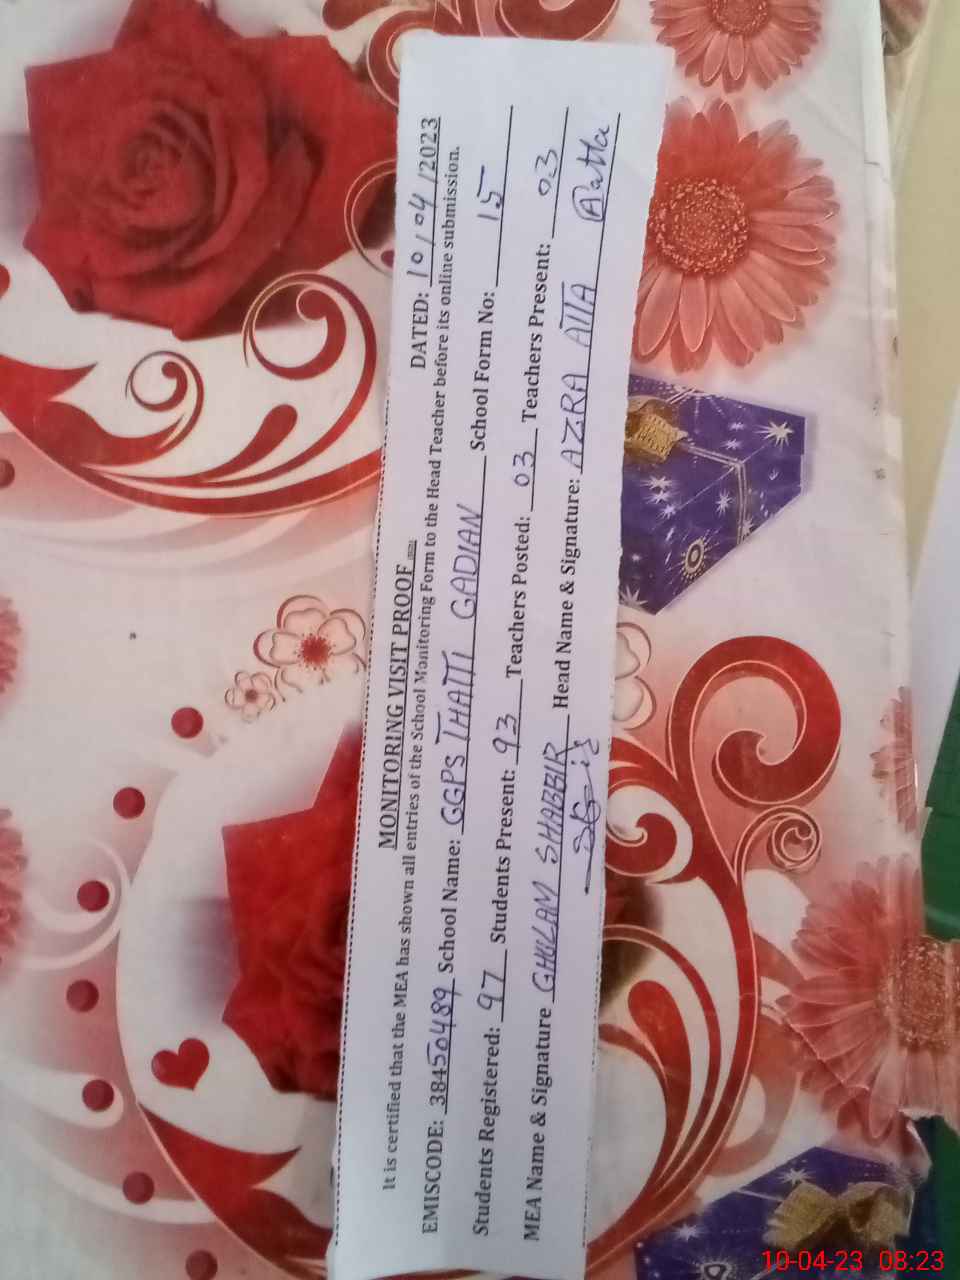 MONITORING VISIT PROOF DATED: 10/04/2023
It is certified that the MEA has shown all entries of the School Monitoring Form to the Head Teacher before its online submission.
EMISCODE: 38450489 School Name: GGPS THATTI GADIAN School Form No: 15
Students Registered: 97 Students Present: 93 Teachers Posted: 03 Teachers Present: 03
MEA Name & Signature GHULAM SHABBIR Head Name & Signature: AZRA ATTA
10-04-23 08:23